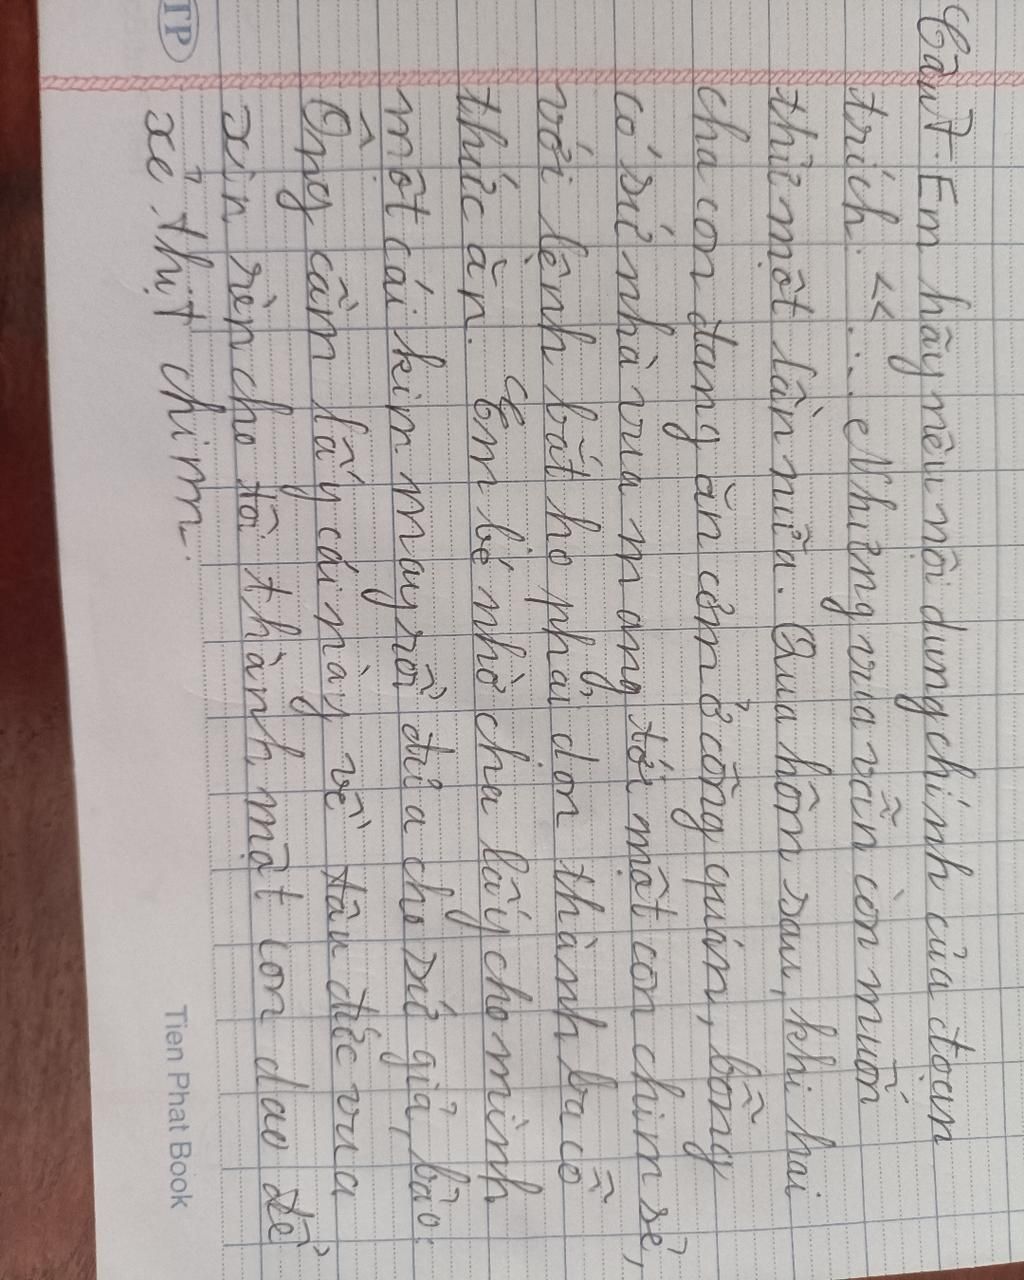 Câu 7. Em hãy nêu nội dung chính của đoạn
trích. << ... Nhưng vua vẫn còn muốn
thử một lần nữa. Qua hôm sau, khi hai
cha con đang ăn cơm ở công quán, bỗng
có sứ nhà vua mang tới một con chim sẻ,
với lệnh bắt họ phải dọn thành ba cỗ
thức ăn. Em bé nhờ cha lấy cho mình
một cái kim may rồi đưa cho sứ giả, bảo:
Ông cầm lấy cái này về tâu đức vua
xin rèn cho tôi thành một con dao để
xẻ thịt chim.
TP
Tien Phat Book